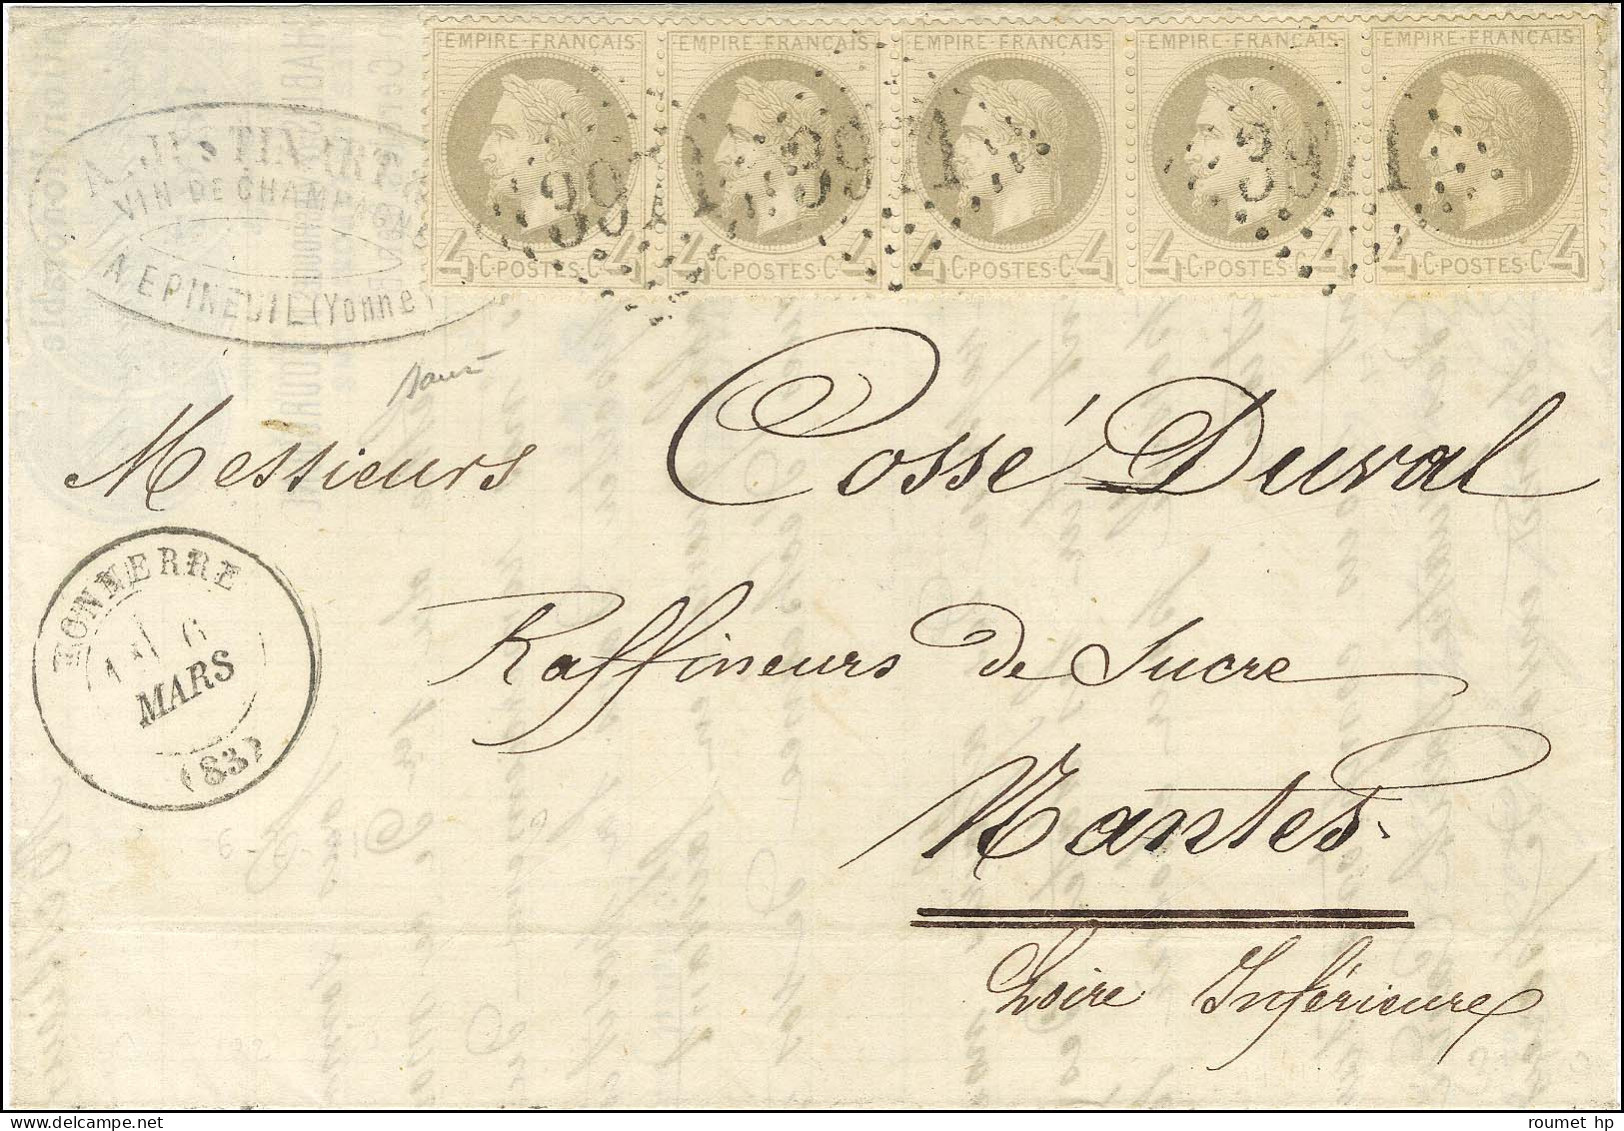 EMPIRE-FRANÇAIS EMPIRE-FRANÇAIS EMPIRE-FRANÇAIS EMPIRE-FRANÇAIS EMPIRE-FRANÇAIS
3971 3971 3971
4 C·POSTES·C 4 4 C·POSTES·C 4 4 C·POSTES·C 4 4 C·POSTES·C 4 4 C·POSTES·C 4
VIN DE CHAMPAGNE
A EPINEUIL (Yonne)
Messieurs Cossé-Duval
TONNERRE
6
MARS
(83)
Raffineurs de Sucre
Nantes
Loire Inférieure
roumet hp